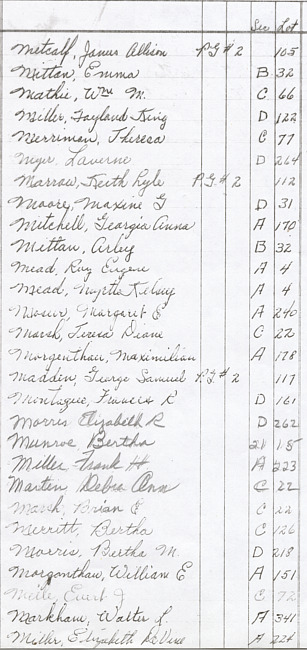 Sec Lot
Metcalf, James Allison P.G.#2 105
Mittan, Emma B 32
Mathie, Wm M. C 66
Miller, Gayland King D 122
Merriman, Theresa C 77
Laverne D 264
Marrow, Keith Lyle P.G.#2 112
Moore, Maxine G D 31
Mitchell, Georgia Anna A 170
Mittan, Arley B 32
Mead, Roy Eugene A 4
Mead, Myrtle Kelsey A 4
Moser, Margaret E A 240
Marsh, Teresa Diane C 22
Morgenthau, Maximilian A 178
Madden, George Samuel P.G.#2 117
Montague, Francis R D 161
Morris Elizabeth R D 262
Munroe, Bertha 15
Miller, Frank H. A 223
Martin, Debra Ann C 22
Marsh, Brian E C 22
Merritt, Bertha C 126
Morris, Bertha M. D 218
Morgonthaw, William E A 151
Evert J C 72
Markham, Walter L. A 341
Miller, Elizabeth DeVine A 224